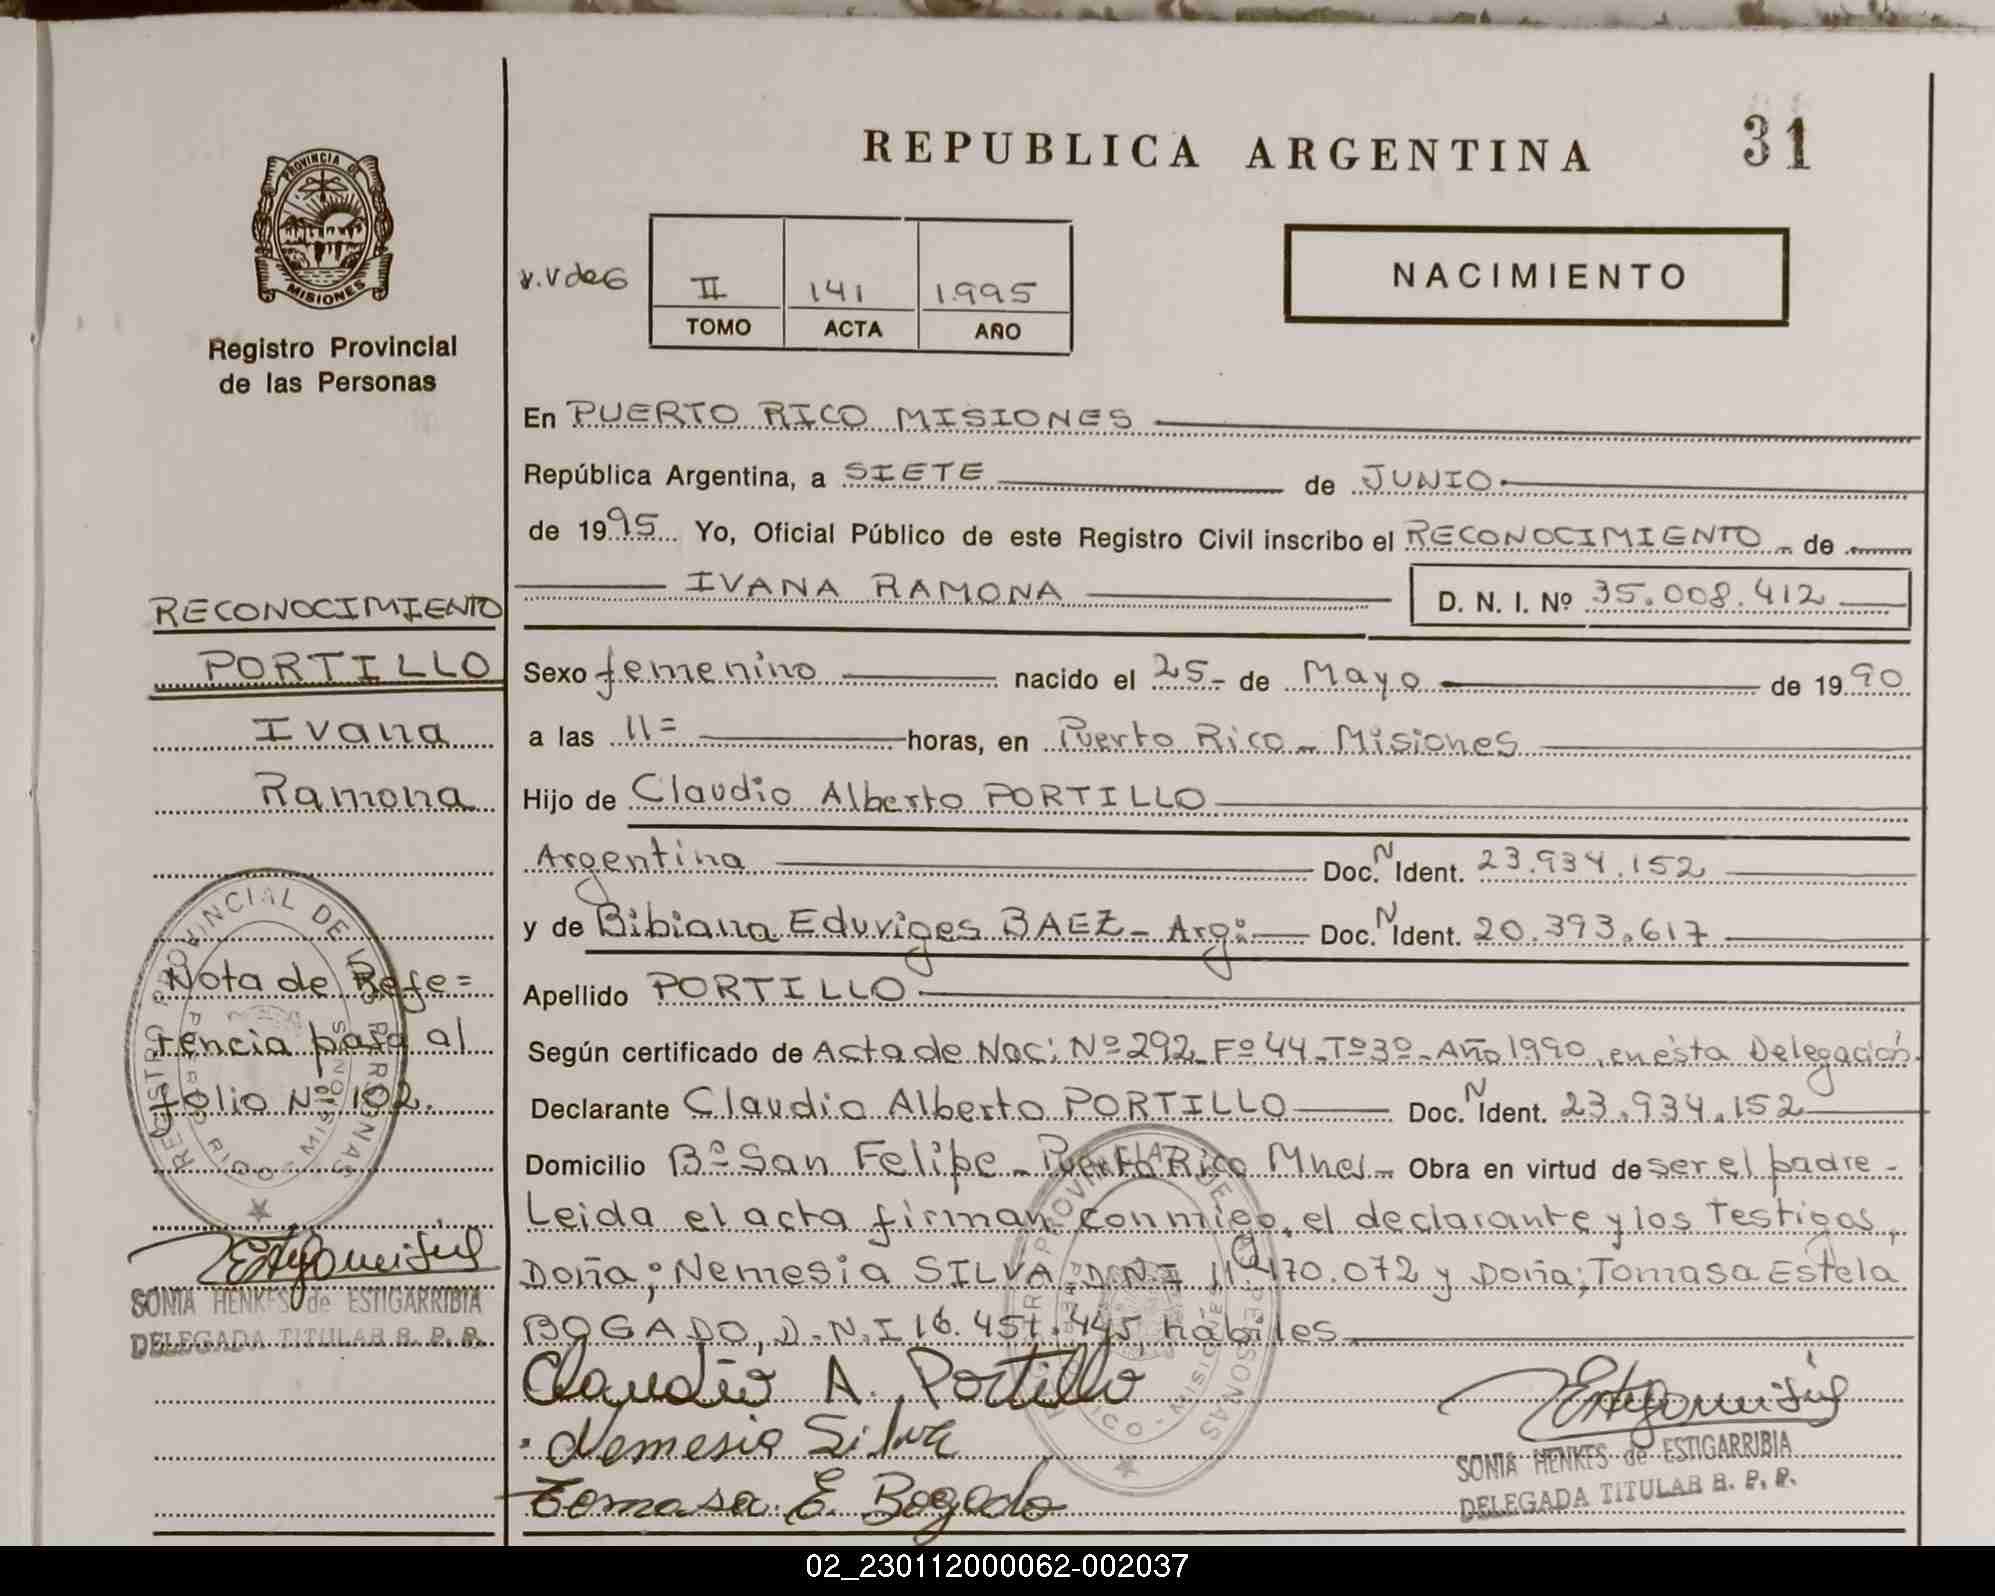 REPUBLICA ARGENTINA
31
PROVINCIA DE
MISIONES
Registro Provincial
de las Personas
v.v de G
II 141 1.995
TOMO ACTA AÑO
NACIMIENTO
En PUERTO RICO MISIONES
República Argentina, a SIETE de JUNIO
de 1995 Yo, Oficial Público de este Registro Civil inscribo el RECONOCIMIENTO de
IVANA RAMONA D. N. I. Nº 35.008.412
Sexo femenino nacido el 25 de Mayo de 1990
a las 11= horas, en Puerto Rico - Misiones
Hijo de Claudio Alberto PORTILLO
Argentina Doc. N Ident. 23.934.152
y de Bibiana Eduviges BAEZ - Arg: Doc. N Ident. 20.393.617
Apellido PORTILLO
Según certificado de Acta de Nac: Nº 292 Fº 44 - Tº 3º - Año 1990, en ésta Delegación
Declarante Claudio Alberto PORTILLO Doc. N Ident. 23.934.152
Domicilio Bº San Felipe - Puerto Rico Mnes - Obra en virtud de ser el padre -
Leida el acta firman conmigo, el declarante y los Testigos,
Doña; Nemesia SILVA D.N.I 11.170.072 y Doña; Tomasa Estela
BOGADO, D.N.I 16.457.445, hábiles
Claudio A. Portillo
Nemesia Silva
Tomasa E. Bogado
SONIA HENKES de ESTIGARRIBIA
DELEGADA TITULAR R. P. P.
RECONOCIMIENTO
PORTILLO
Ivana
Ramona
Nota de Refe=
rencia para al
folio Nº 102.
REGISTRO PROVINCIAL DE LAS PERSONAS
SONIA HENKES de ESTIGARRIBIA
DELEGADA TITULAR R. P. P.
02_230112000062-002037